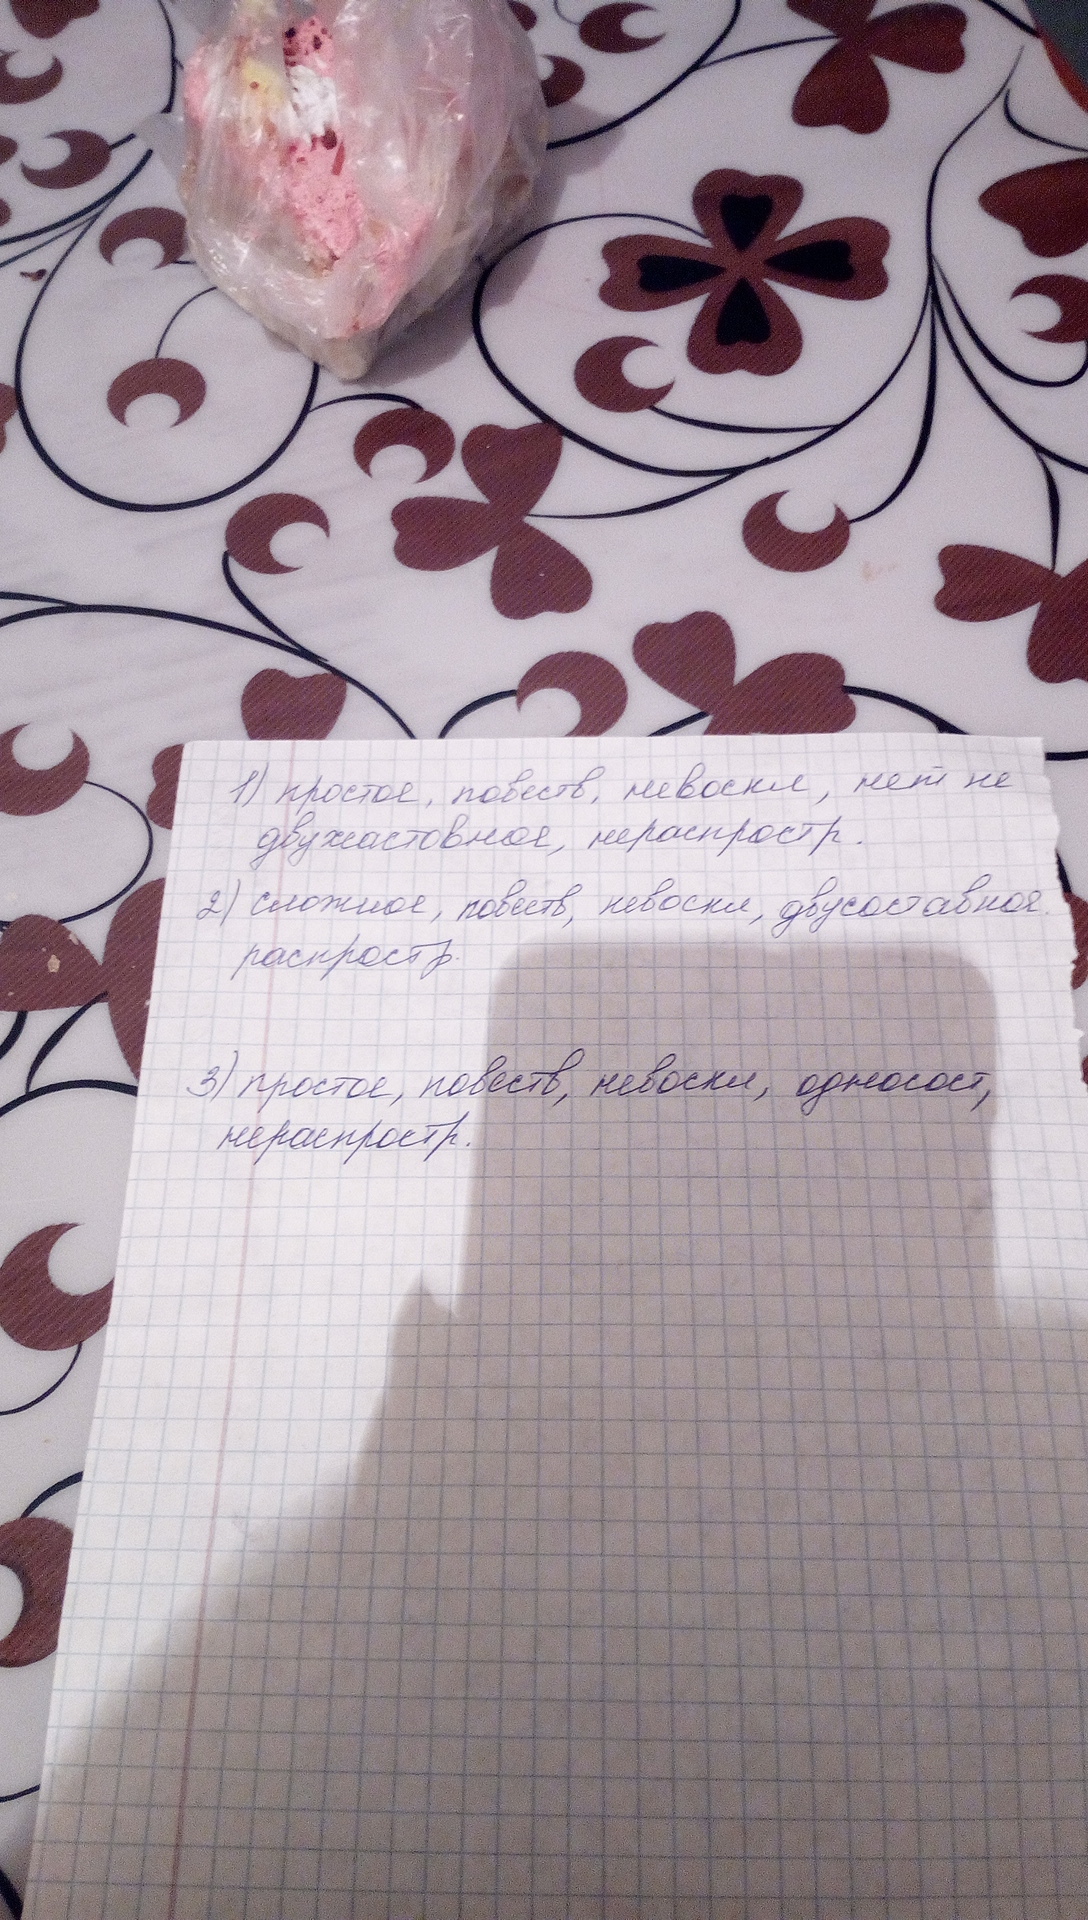 1) простое, повеств, невоскл, нет не
двухчастовное, нераспростр.
2) сложное, повеств, невоскл, двусоставное.
распростр.
3) простое, повеств, невоскл, односост,
нераспростр.